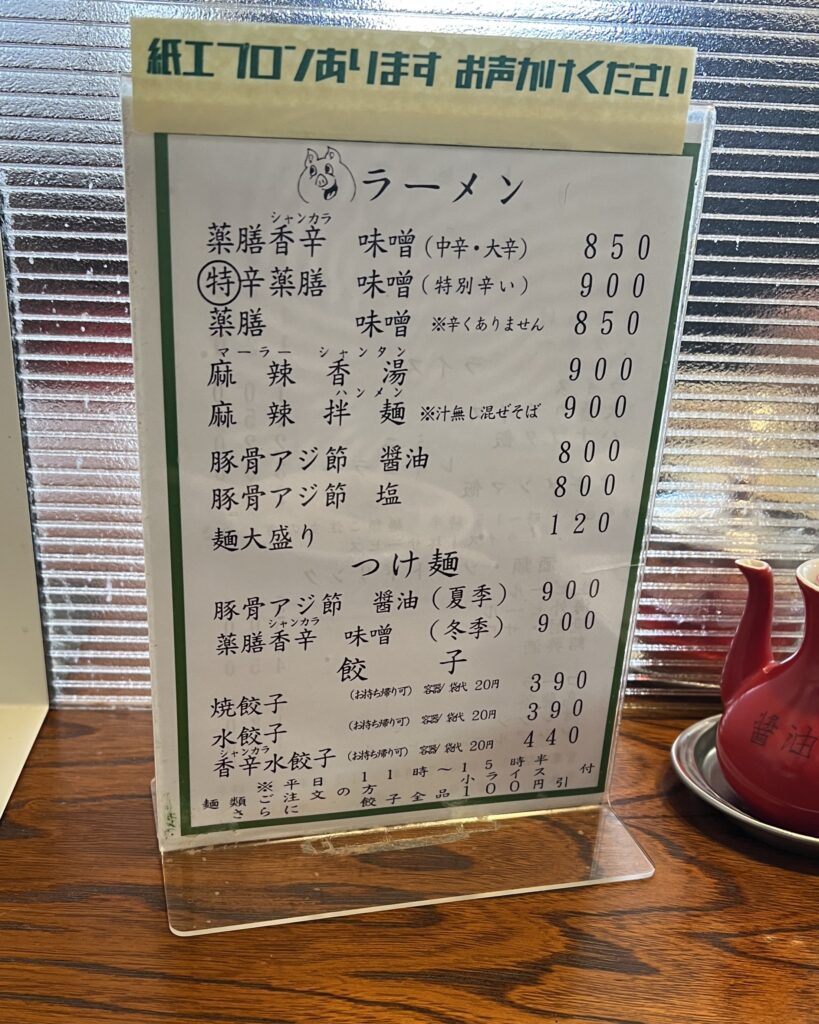 紙エプロンあります お声がけください
ラーメン
シャンカラ
薬膳香辛 味噌(中辛・大辛) 850
特辛薬膳 味噌(特別辛い) 900
薬膳 味噌 ※辛くありません 850
マーラー シャンタン
麻辣香湯 900
ハンメン
麻辣拌麺 ※汁無し混ぜそば 900
豚骨アジ節 醤油 800
豚骨アジ節 塩 800
麺大盛り 120
つけ麺
豚骨アジ節 醤油(夏季) 900
シャンカラ
薬膳香辛 味噌 (冬季) 900
餃子
焼餃子 (お持ち帰り可) 容器/袋代 20円 390
水餃子 (お持ち帰り可) 容器/袋代 20円 390
シャンカラ
香辛水餃子 (お持ち帰り可) 容器/袋代 20円 440
※平日 11時~15時半
麺類ご注文の方 小ライス付
さらに 餃子全品100円引
醤油